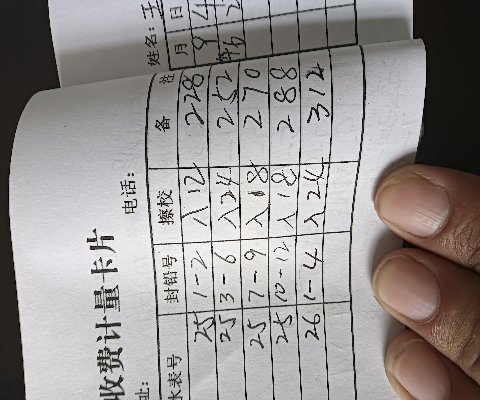 姓名:
月 日
收费计量卡片
址: 电话:
水表号 封铅号 擦校 备注
25 1-2 入12 228
25 3-6 入24 252
25 7-9 入18 270
25 10-12 入18 288
26 1-4 入24 312